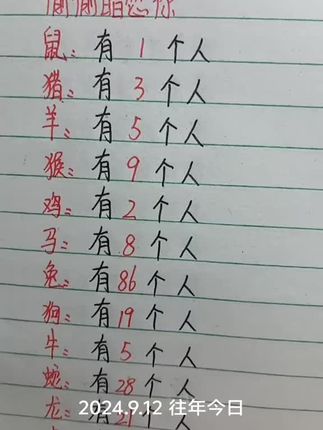 偷偷暗恋你
鼠：有1个人
猪：有3个人
羊：有5个人
猴：有9个人
鸡：有2个人
马：有8个人
兔：有86个人
狗：有19个人
牛：有5个人
蛇：有28个人
龙：有21个人
2024.9.12 往年今日